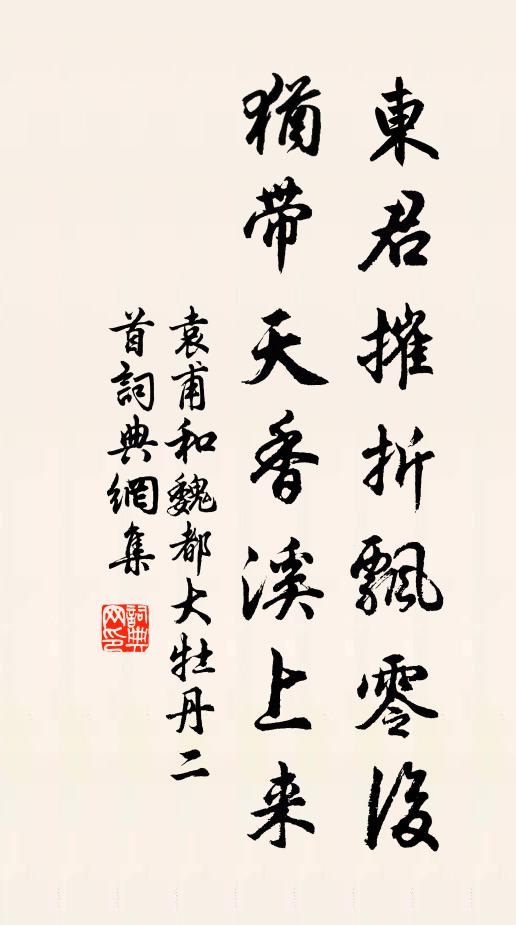 東君摧折飄零後
猶带天香溪上来
袁甫和魏都大牡丹二
首詞典網集
詞典
网印